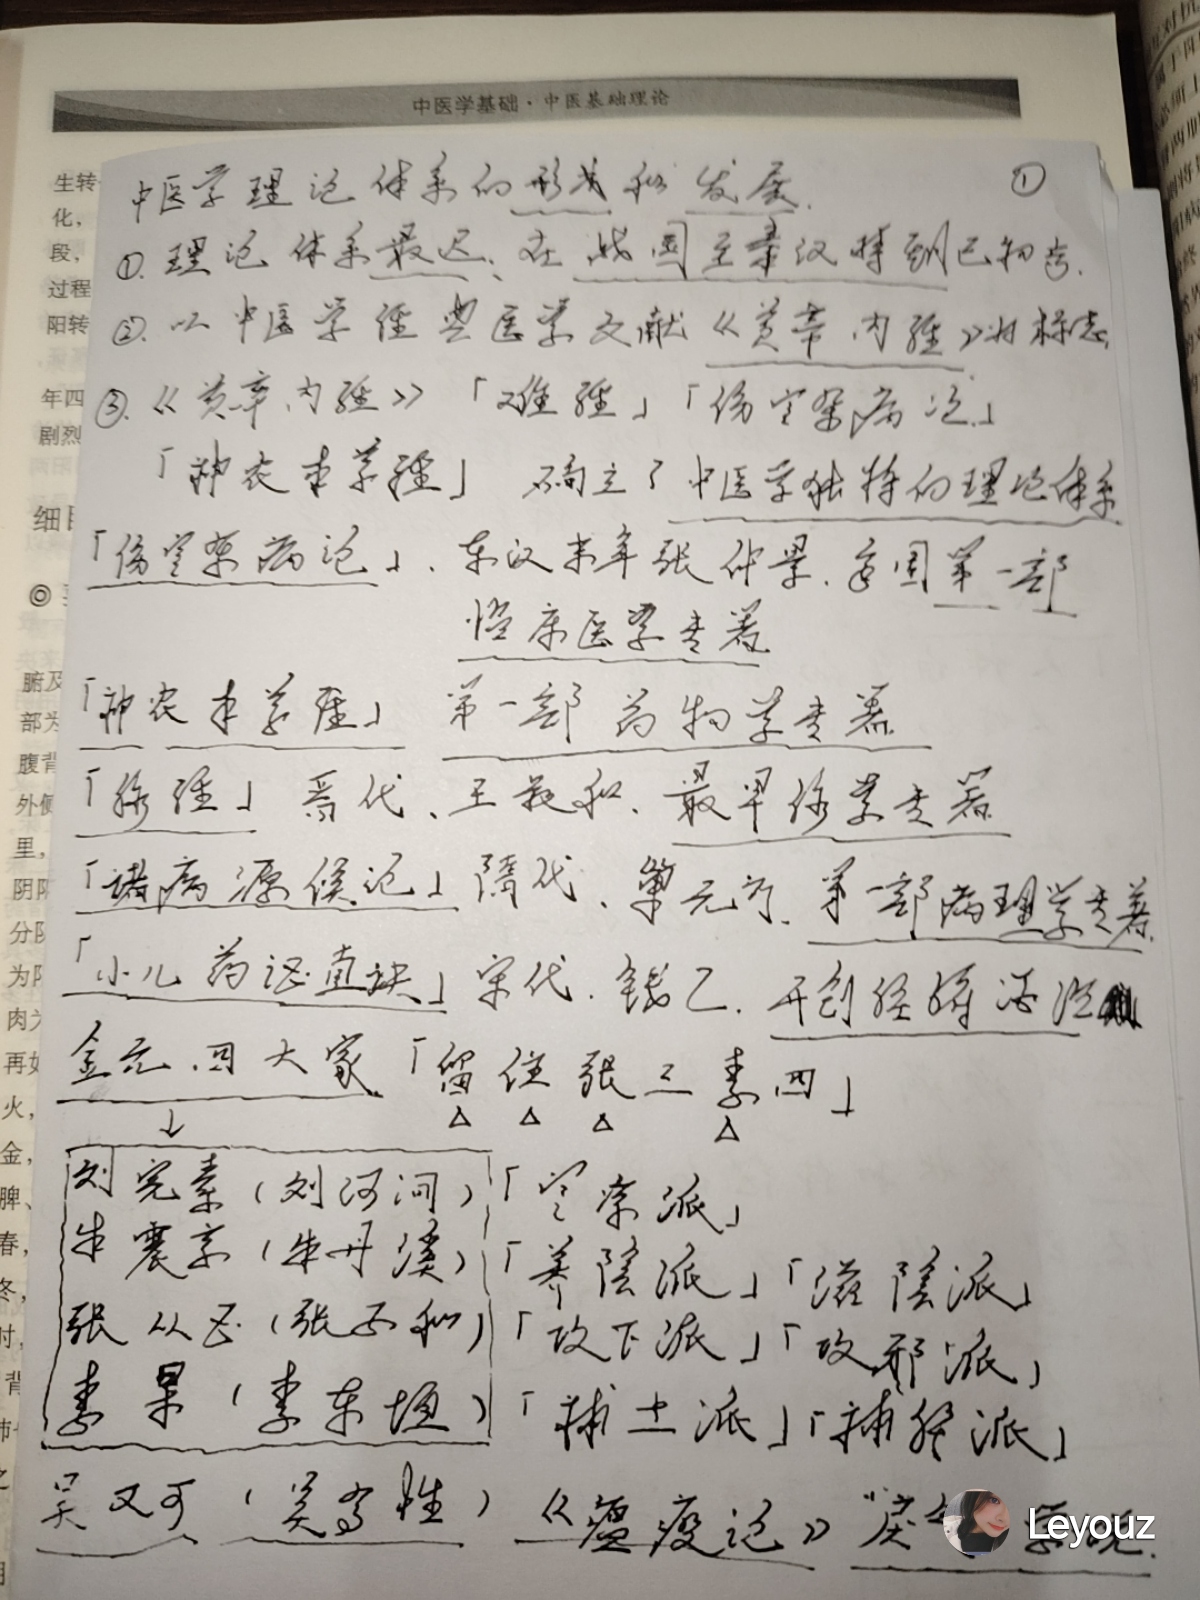 中医学基础·中医基础理论
中医学理论体系的形成和发展. ①
①. 理论体系最迟、在战国至秦汉时期已初步.
②. 以中医学经典医学文献《黄帝内经》为标志
③. 《黄帝内经》「难经」「伤寒杂病论」
「神农本草经」 确立了中医学独特的理论体系
「伤寒杂病论」. 东汉末年张仲景. 我国第一部
临床医学专著
「神农本草经」 第一部药物学专著
「脉经」 晋代、王叔和. 最早脉学专著
「诸病源候论」隋代、巢元方. 第一部病理学专著.
「小儿药证直诀」宋代. 钱乙. 开创脏腑证治
金元.四大家「留住张三李四」
刘完素(刘河间)「寒凉派」
朱震亨(朱丹溪)「养陰派」「滋陰派」
张从正(张子和)「攻下派」「攻邪派」
李杲(李东垣)「補土派」「補脾派」
吴又可(吴有性)《瘟疫论》"戾气 学说.
Leyouz
生转
化,
段,
过程
阳转
年四
剧烈
细目
腑及
部为
腹背
外侧
里,
阴阳
为阳
再如
火,
金,
脾、
春,
冬,
时,